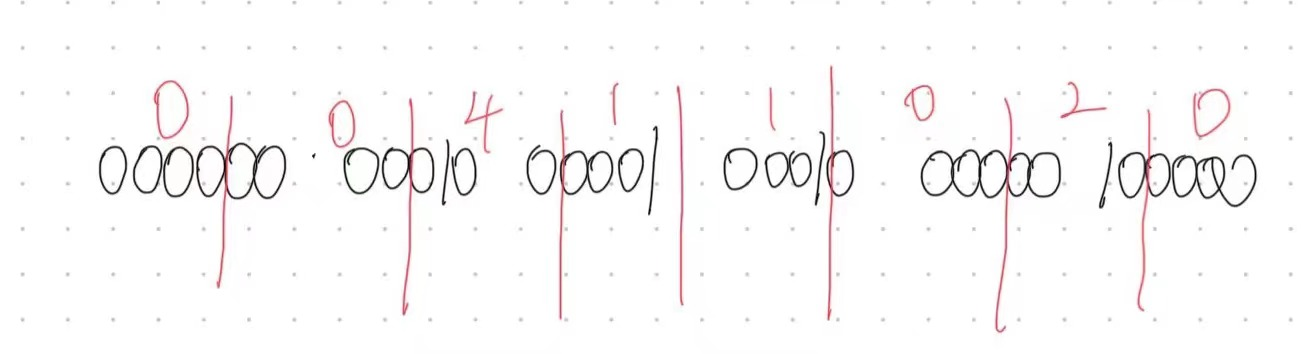 0 0 4 1 1 0 2 0
000000 00010 00001 00010 00000 100000